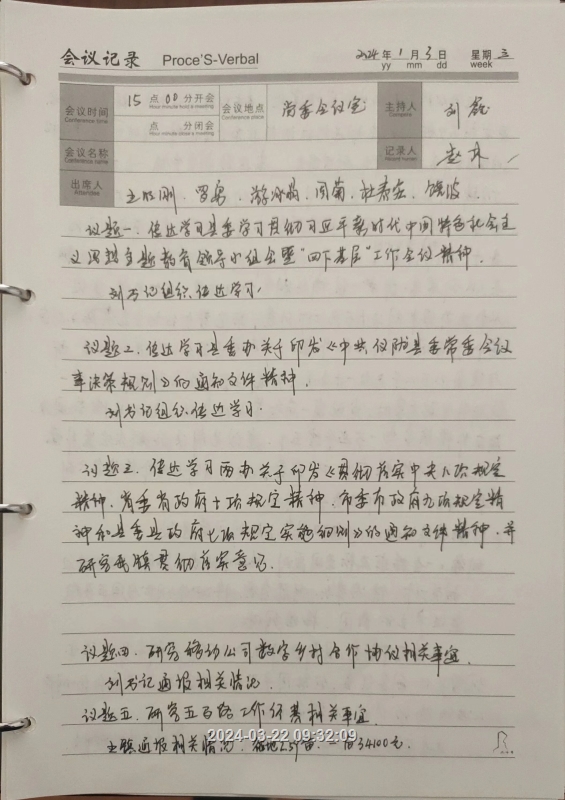 会议记录 Proce'S-Verbal 2024年1月3日 星期三
yy mm dd week
会议时间 15点00分开会 会议地点 党委会议室 主持人 刘
点 分闭会
会议名称 记录人 赵
出席人 罗勇、周菊、
议题一、传达学习县委学习贯彻习近平新时代中国特色社会主
义思想主题教育领导小组会暨“四下基层”工作会议精神.
刘书记组织传达学习.
议题二、传达学习县委办关于印发《中共仪陇县委常委会议
事决策规则》的通知文件精神.
刘书记组织传达学习.
议题三、传达学习两办关于印发《贯彻落实中央八项规定
精神、省委省政府十项规定精神、市委市政府九项规定精
神和县委县政府七项规定实施细则》的通知文件精神,并
研究我镇贯彻落实意见.
议题四、研究移动公司数字乡村合作协议相关事宜
刘书记通报相关情况.
议题五、研究五百路工作经费相关事宜
通报相关情况. 34100元.
2024-03-22 09:32:09